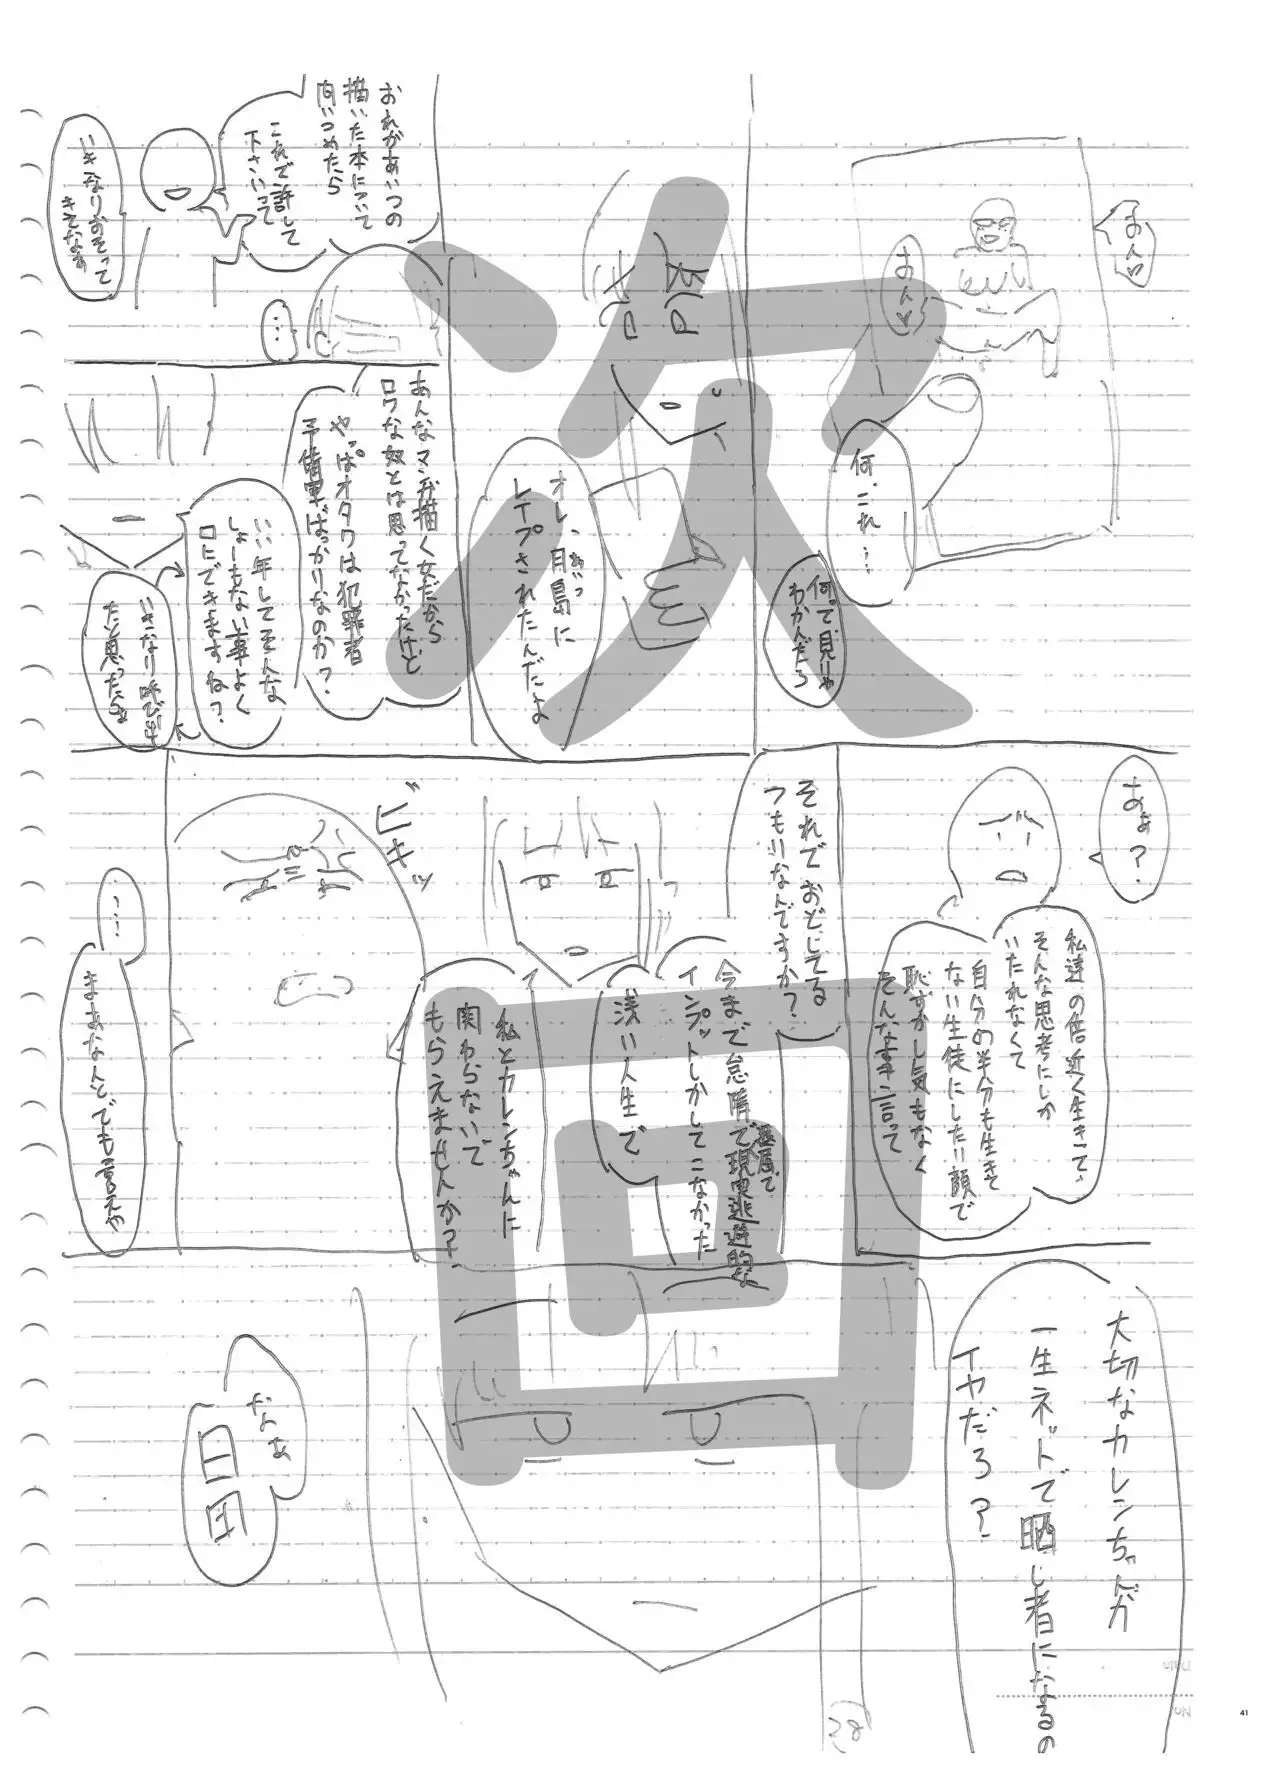 あん♡
あん♡
何、これ…
何って見りゃ
わかんだろ
オレ、
月島に
レイプされたんだよ
おれがあいつの
描いた本について
問いつめたら
これで許して
下さいって
いきなりおそって
きてなぁ
…
あんなマンガ描く女だから
ロクな奴とは思ってなかったけど
やっぱオタクは犯罪者
予備軍ばっかりなのか?
いい年してそんな
しょーもない事よく
口にできますね?
いきなり呼び出し
たと思ったらぁ
あぁ?
私達の倍近く生きて、
そんな思考にしか
いたれなくて
自分の半分も生きて
ない生徒にしたり顔で
恥ずかし気もなく
そんな事言って
それでおどしてる
つもりなんですか?
今まで怠惰で
現実逃避的な
インプットしかしてこなかった
浅い人生で
私とカレンちゃんに
関わらないで
もらえませんか?
ビキッ
っ…
まぁなんとでも言えや
大切なカレンちゃんが
一生ネットで晒し者になるの
イヤだろ?
なんあ
次
回
38
41